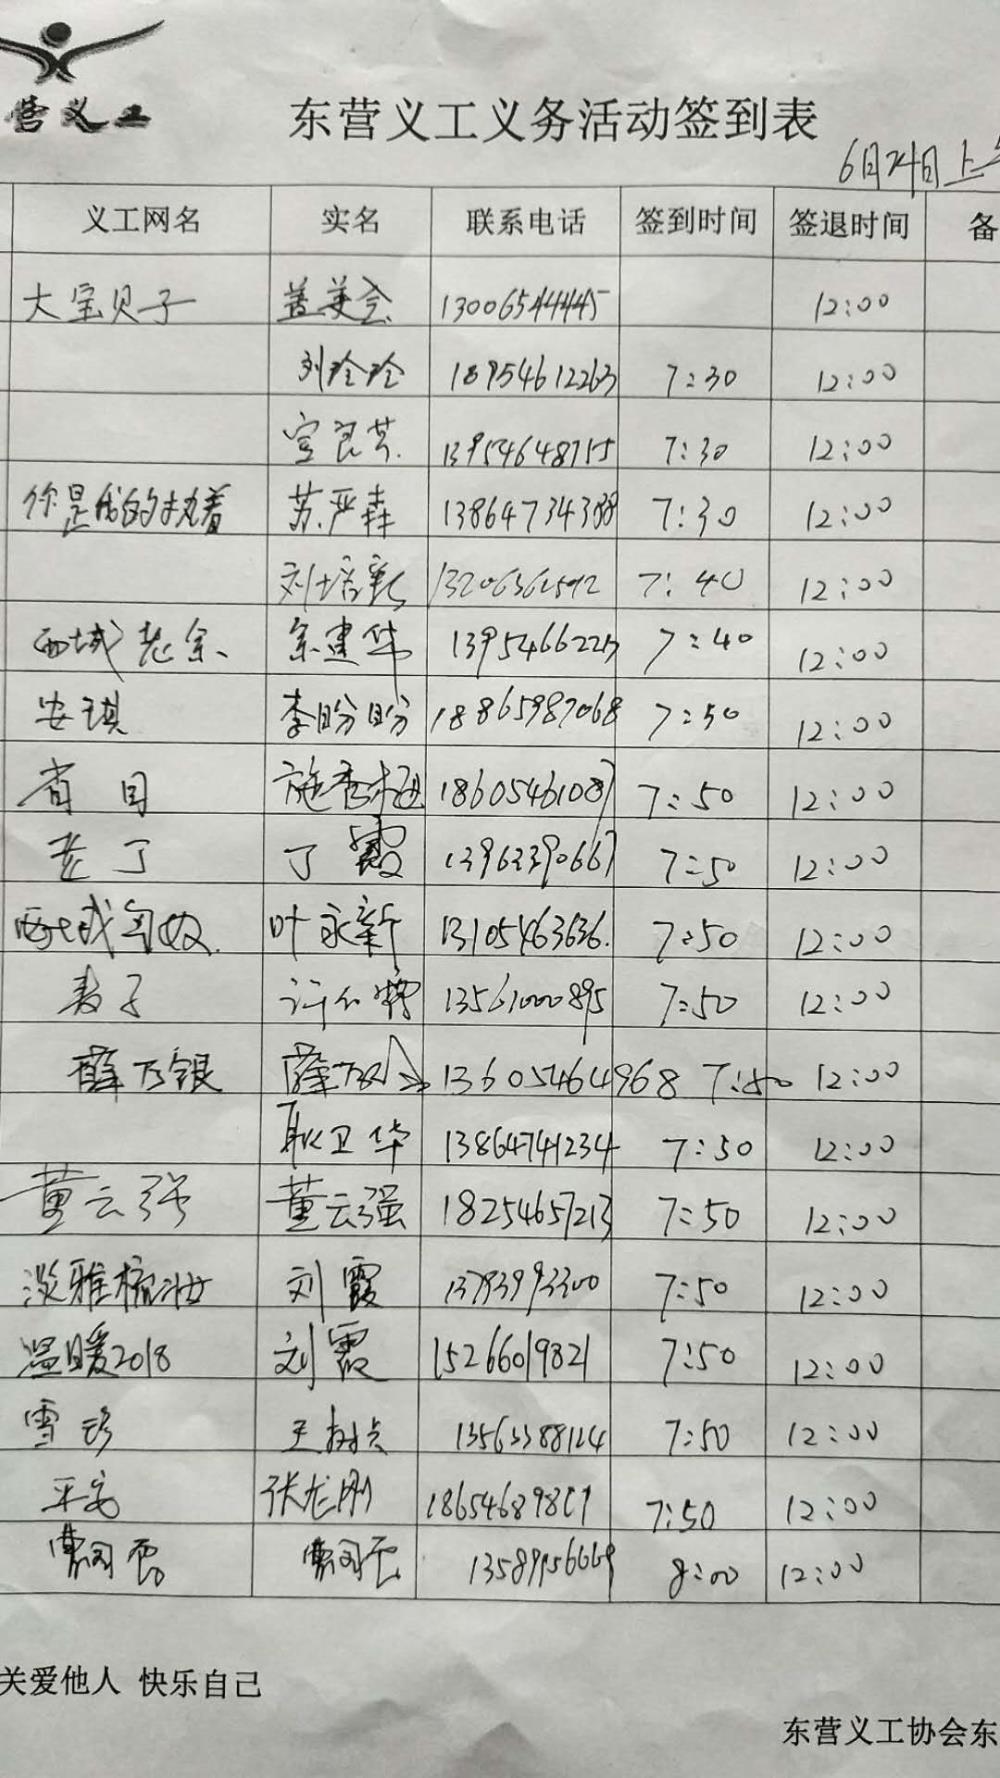 营义工
东营义工义务活动签到表
6月24日上
义工网名 实名 联系电话 签到时间 签退时间 备
大宝贝子 盖美会 13006544445 12:00
刘玲玲 18954612263 7:30 12:00
13954648715 7:30 12:00
你是我的执着 苏严森 13864734388 7:30 12:00
刘培新 7:40 12:00
西域老余 余建华 7:40 12:00
安琪 李盼盼 18865987068 7:50 12:00
省目 施秀梅 18605461087 7:50 12:00
老丁 丁霞 13963390667 7:50 12:00
叶永新 13105463636 7:50 12:00
麦子 13561000895 7:50 12:00
薛乃银 薛乃银 13605464968 7:50 12:00
耿卫华 13864741234 7:50 12:00
董云强 董云强 18254657213 7:50 12:00
淡雅梳妆 刘霞 13793993300 7:50 12:00
温暖2018 刘霞 15266019821 7:50 12:00
雪珍 13563388124 7:50 12:00
平安 张龙刚 7:50 12:00
8:00 12:00
关爱他人 快乐自己
东营义工协会东